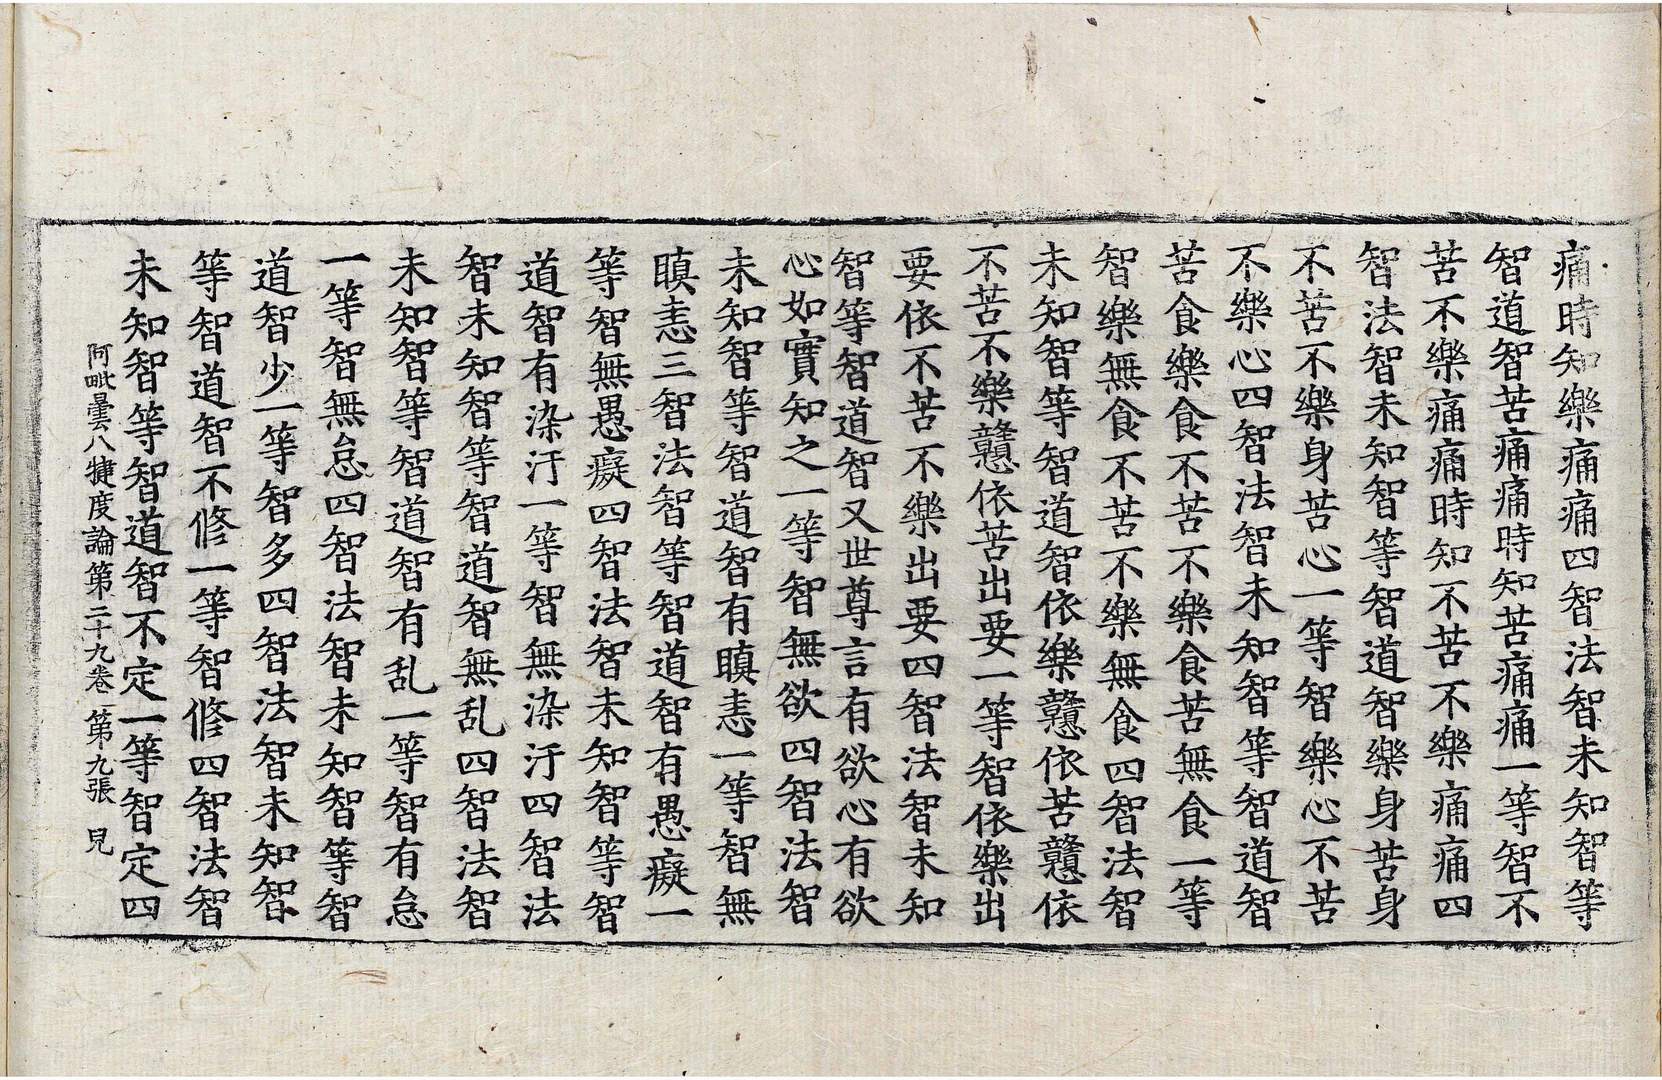 痛時知樂痛痛四智法智未知智等
智道智苦痛痛時知苦痛痛一等智不
苦不樂痛痛時知不苦不樂痛痛四
智法智未知智等智道智樂身苦身
不苦不樂身苦心一等智樂心不苦
不樂心四智法智未知智等智道智
苦食樂食不苦不樂食苦無食一等
智樂無食不苦不樂無食四智法智
未知智等智道智依樂戇依苦戇依
不苦不樂戇依苦出要一等智依樂出
要依不苦不樂出要四智法智未知
智等智道智又世尊言有欲心有欲
心如實知之一等智無欲四智法智
未知智等智道智有瞋恚一等智無
瞋恚三智法智等智道智有愚癡一
等智無愚癡四智法智未知智等智
道智有染汙一等智無染汙四智法
智未知智等智道智無乱四智法智
未知智等智道智有乱一等智有怠
一等智無怠四智法智未知智等智
道智少一等智多四智法智未知智
等智道智不修一等智修四智法智
未知智等智道智不定一等智定四
阿毗曇八揵度論第二十九卷 第九張 見